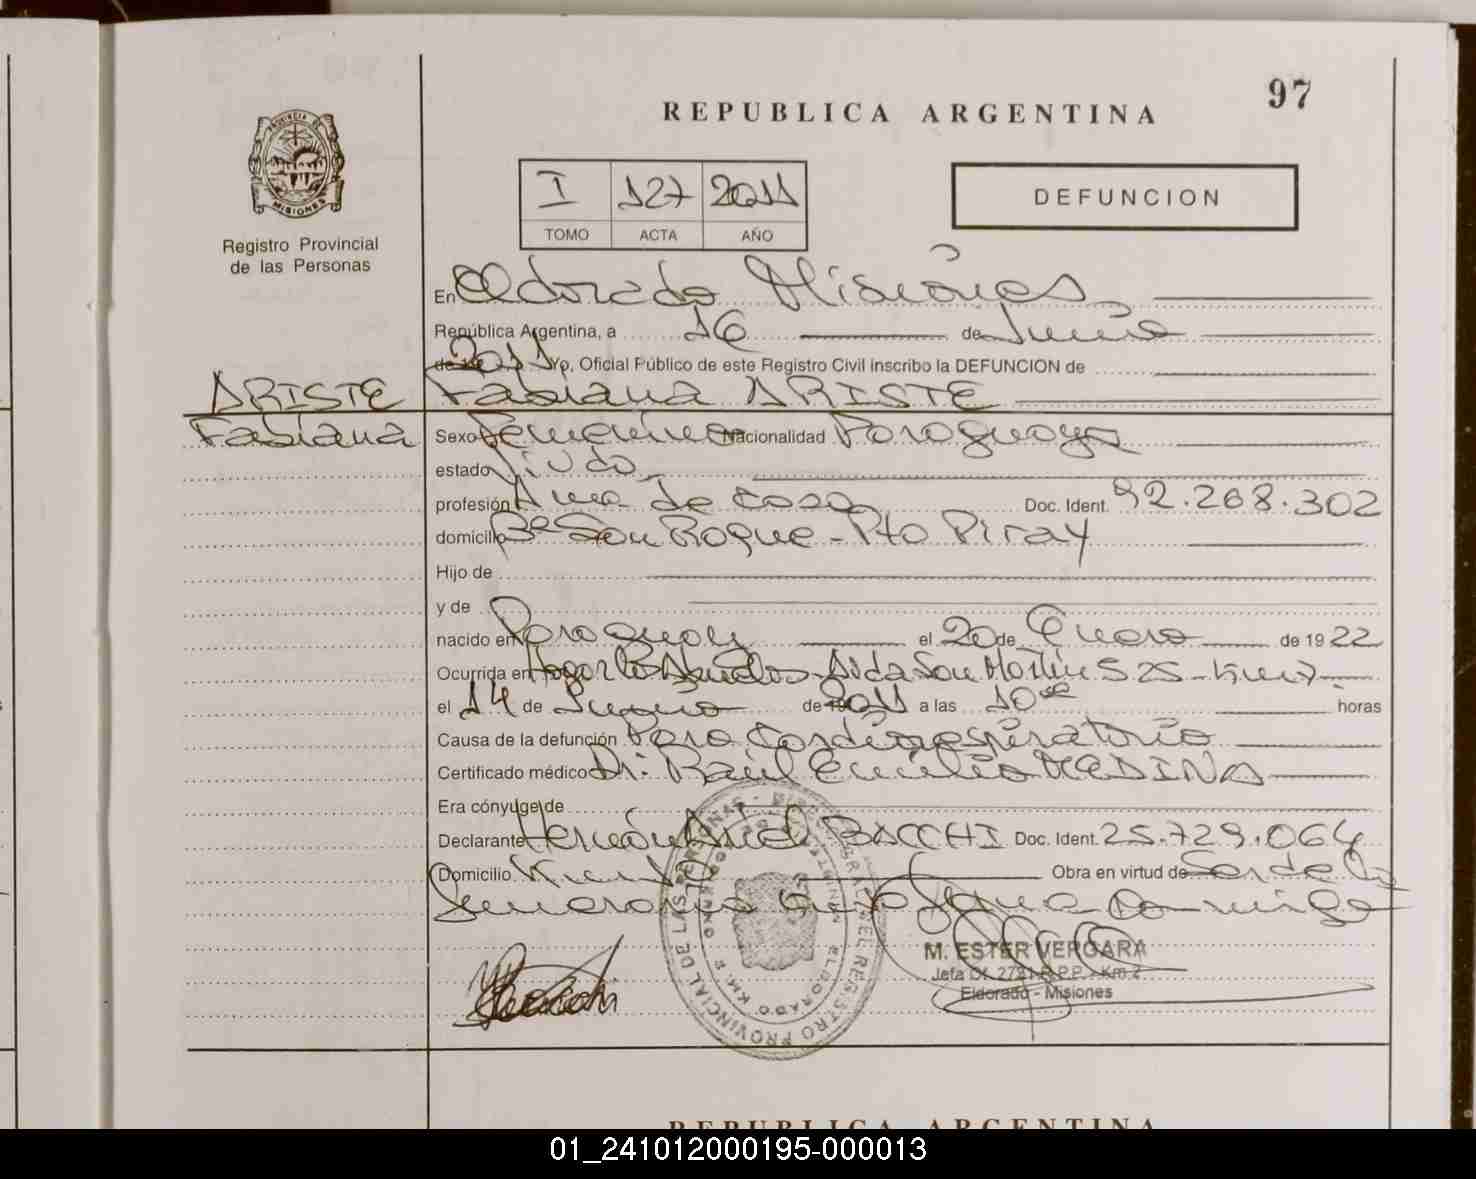 97
REPUBLICA ARGENTINA
PROVINCIA DE
MISIONES
Registro Provincial
de las Personas
I 127 2011
TOMO ACTA AÑO
DEFUNCION
En Eldorado Misiones
República Argentina, a 16 de Junio
2011 Yo, Oficial Público de este Registro Civil inscribo la DEFUNCION de
ARISTE Fabiana ARISTE
Fabiana Sexo Femenino Nacionalidad Paraguaya
estado Viuda
profesión Ama de casa Doc. Ident. 92.268.302
domicilio Bº San Roque - Pto Piray
Hijo de
y de
nacido en Paraguay el 20 de Enero de 1922
Ocurrida en Hogar Abuelos - Avda San Martín 525 - Km 7
el 14 de Junio de 2011 a las 10 horas
Causa de la defunción Paro Cardiorespiratorio
Certificado médico Dr. Raúl Emilio MEDINA
Era cónyuge de
Declarante Hernán Ariel BACCHI Doc. Ident. 25.729.064
Domicilio Obra en virtud de
M. ESTER VERGARA
Jefa Of. 2721 R.P.P. - Km 2
Eldorado - Misiones
REPUBLICA ARGENTINA
01_241012000195-000013